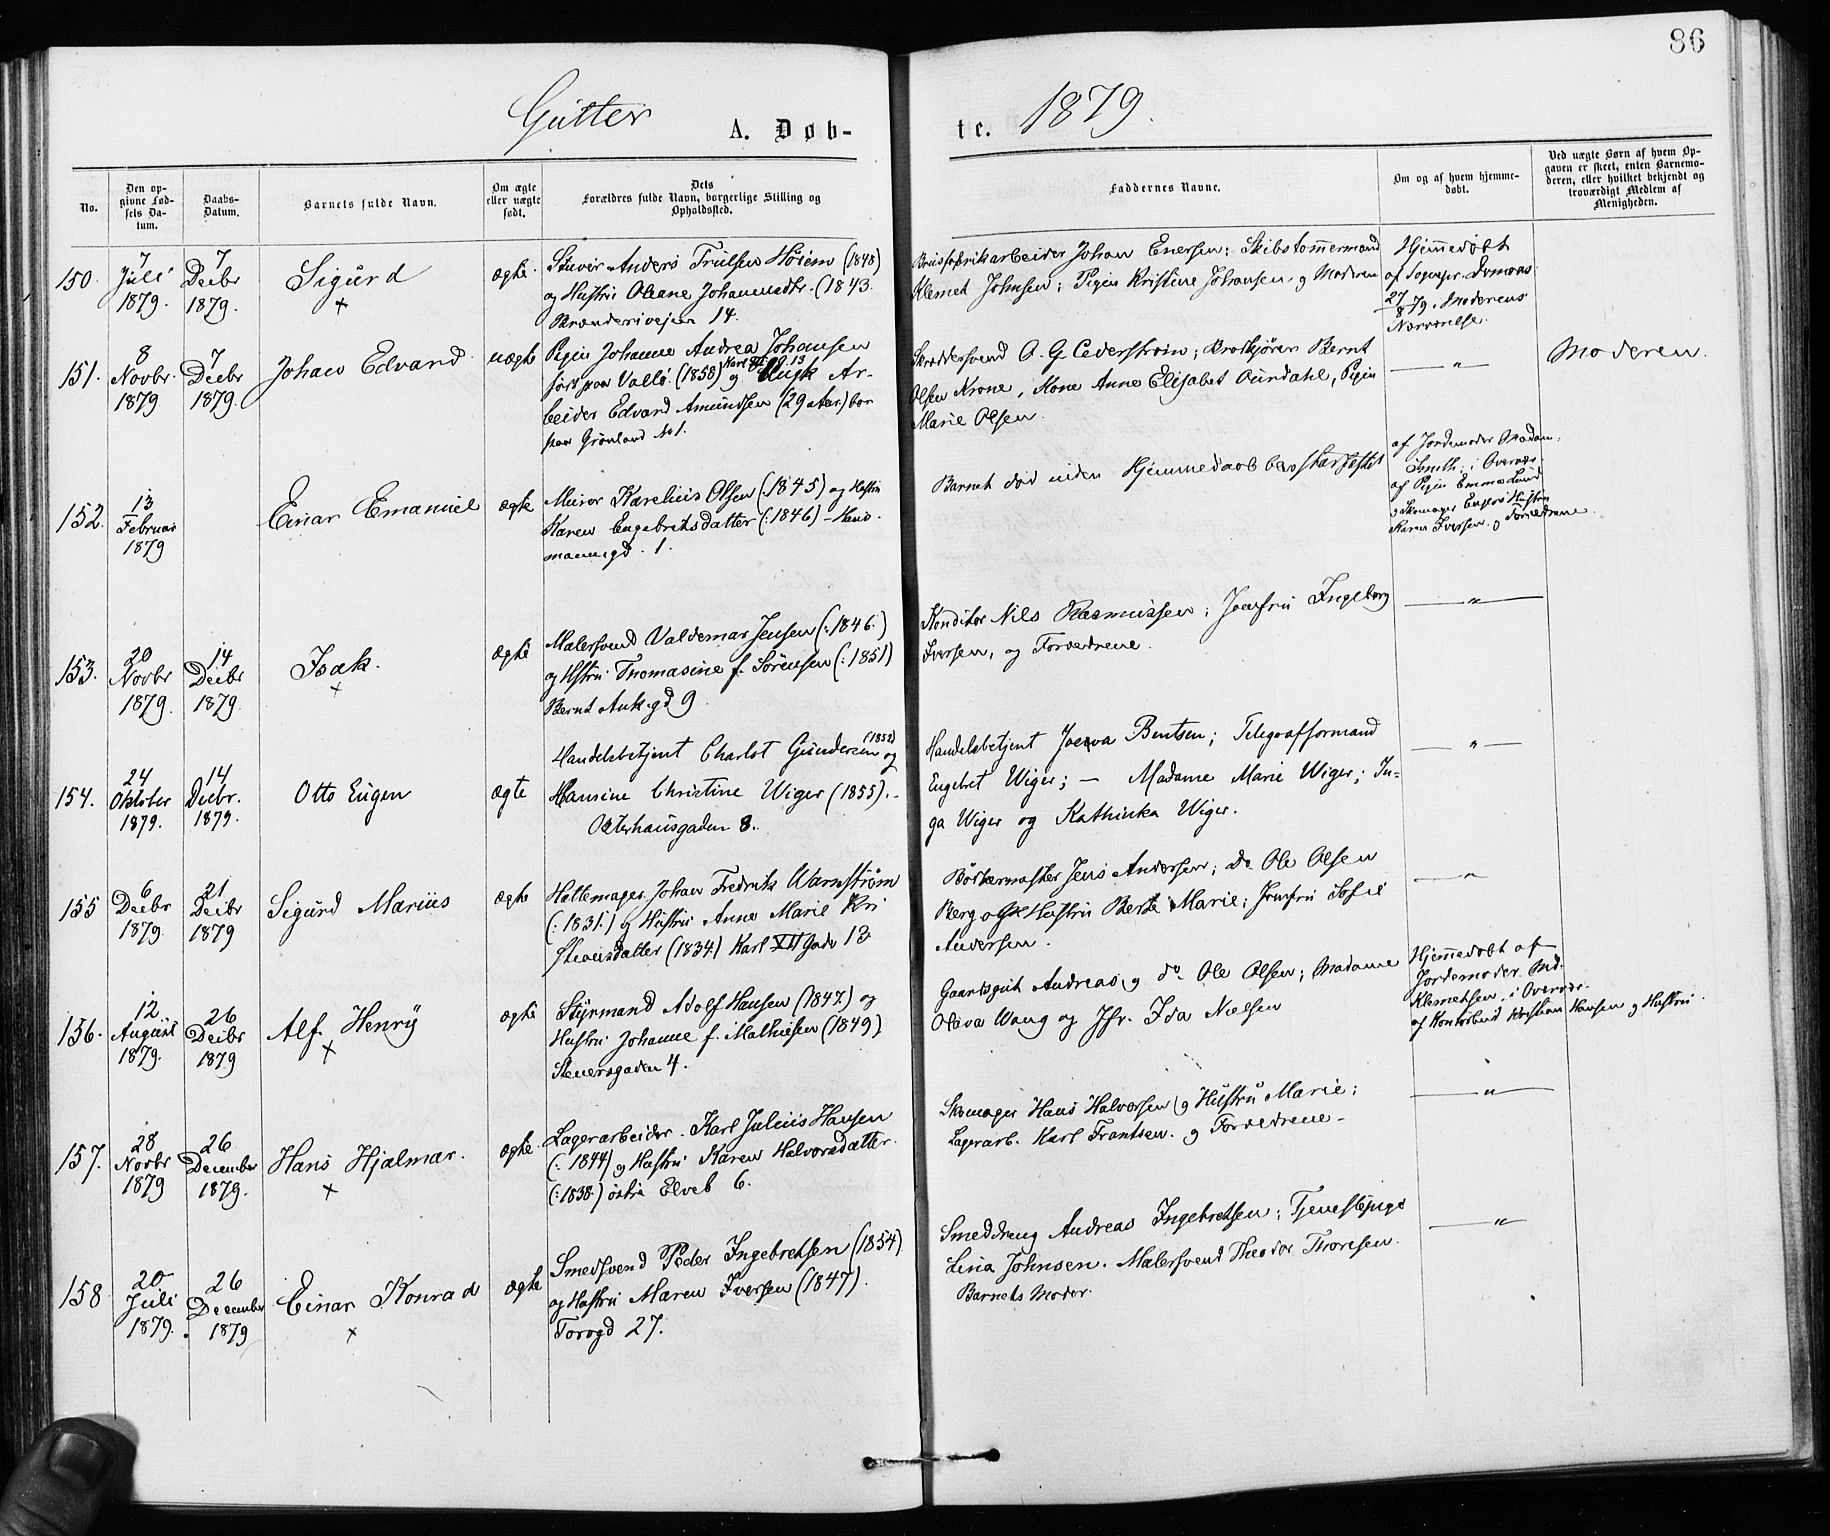 86
Gutter A. Døb- te. 1879.
No.
Den op-
givne Fød-
sels Da-
tum.
Daabs-
Datum.
Barnets fulde Navn.
Om ægte
eller uægte
født.
Dets
Forældres fulde Navn, borgerlige Stilling og
Opholdssted.
Faddernes Navne.
Om og af hvem hjemme-
døbt.
Ved uægte Børn af hvem Op-
gaven er skeet, enten Barnemo-
deren, eller hvilket bekjendt og
troværdigt Medlem af
Menigheden.
150.
7
Juli
1879.
7
Decbr
1879.
Sigurd
+
ægte.
Stuver Anders Trulsen Høiem (1848)
og Hustru Oleane Johannesdtr. (1843.
Brænderivejen 14.
Brusfabrikarbeider Johan Enersen; Skibstømmermand
Klemet Johnsen; Pigen Kristine Johansen, og Moderen
Hjemmedøbt
af Sognepr.
27/8 79. Moderens
Nærværelse.
151.
8
Novbr.
1879
7
Decbr
1879.
Johan Edvard
uægte
Pigen Johanne Andrea Johansen
født paa Vallö (1858) og Ar-
beider Edvard Amundsen (29 Aar) bor
paa Grønland No 1.
Skræddersvend A. G. Cederstrøm; Brolkjører Bernt
Olsen Krone, Kone Anne Elisabet Aurdahl, Pigen
Marie Olsen.
— " —
Moderen.
152.
13
Februar
1879
Einar Emanuel
ægte
Murer Karelius Olsen (:1845) og Hustru
Karen Engebretsdatter (:1846) - Heus-
mannsgd. 1.
Barnet død uden Hjemmedaab bestadfæstet
af Jordemoder Madam
Smith. i Overvær.
af Pigen Emma Lund
og Skomager Hustru
Karen Iversen. og Forældrene.
153.
20
Novbr
1879.
14
Decbr
1879.
Isak.
+
ægte
Malersvend Valdemar Jensen (:1846.)
og Hstru Thomasine f. Sörensen (:1851)
Bernt Ank.gd 9
Konditor Nils Rasmussen; Jomfru Ingeborg
Iversen, og Forældrene.
— " —
154.
24
Oktober
1879.
14
Decbr.
1879.
Otto Eugen
ægte
Handelsbetjent Charlot Gundersen (1852) og
Hansine Christine Wiger (1855). -
Osterhausgaden 8.
Handelsbetjent Joerva Bentsen; Telegrafformand
Engebret Wiger; — Madame Marie Wiger; In-
ga Wiger og Kathinka Wiger.
— " —
155
6
Decbr
1879.
21
Decbr
1879
Sigurd Marius
ægte
Hattemager Johan Fredrik Warnstrøm
(:1831.) og Hustru Anne Marie Kri
stiansdatter (1834) Karl XII Gade 13
Bødkermester Jens Andersen; Do Ole Olsen
Berg og Hustru Berte Marie; Jomfru Sofie
Andersen.
— " —
156.
12
August
1879.
26
Decbr
1879
Alf. Henry
+
ægte
Styrmand Adolf Hansen (1847.) og
Hustru Johanne f. Mathiesen (1849)
Stenersgaden 4.
Gaardsgut Andreas og do. Ole Olsen; Madame
Olava Wang og Jfr. Ida Nielsen
Hjemmedøbt af
Jordemoder. Md.
Klemetsen, i Overvær.
af Kontorbud Kristian Hansen og Hustru.
157.
28
Novbr
1879
26
December
1879.
Hans Hjalmar.
+
ægte.
Lagerarbeider. Karl Julius Hansen
(:1844) og Hustru Karen Halvorsdatter.
(:1838.) østre Elveb 6.
Skomager Hans Halvorsen og Hustru Marie;
Lagerarb. Karl Frantsen. og Forældrene -
— " —
158
20
Juli
1879.
26
December
1879
Einar Konrad
+
ægte
Smedsvend Peder Ingebretsen (1854)
og Hustru Maren Iversen (1847).
Torvgd 27.
Smeddreng Andreas Ingebretsen; Tjenestepige
Lina Johnsen. Malersvend Theodor Thoresen.
Barnets Moder.
— " —